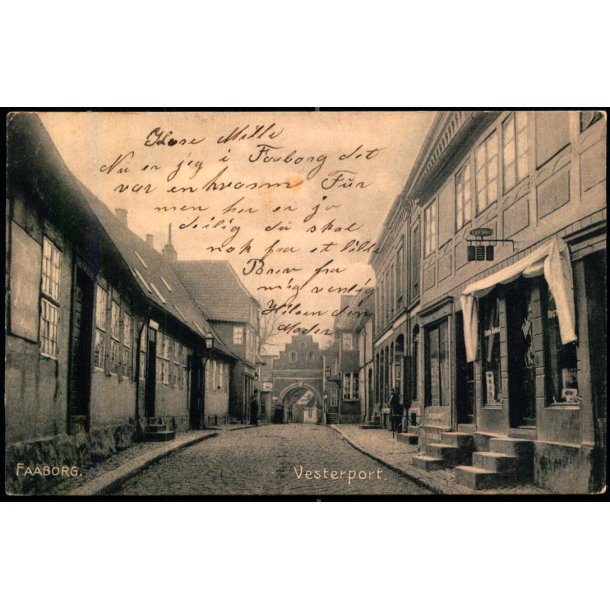 Kære Mille
Nu er jeg i Faaborg det
var en hvasm Tür
men her er jo
deilig du skal
nok faa et lille
Brev fra
mig venlig
Hilsen din
Moder
FAABORG.
Vesterport.